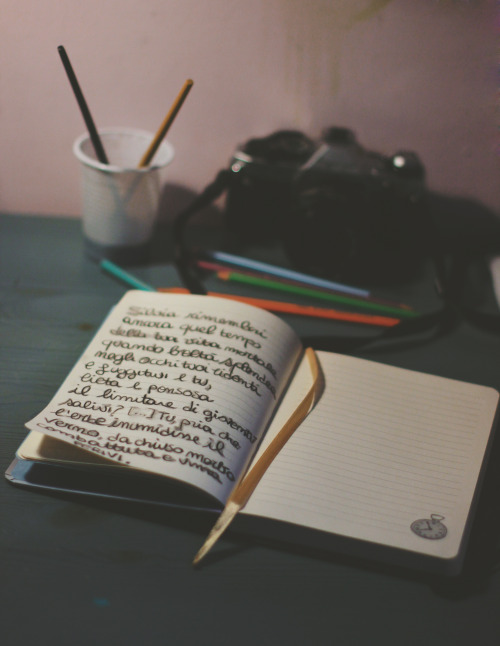 Silvia rimembri
ancora quel tempo
della tua vita mortale
quando beltà splendea
negli occhi tuoi ridenti
e fuggitivi e tu,
lieta e pensosa
il limitare di gioventù
salivi? [...] Tu, pria che
l'erbe inaridisse il
verno, da chiuso morbo
combattuta e vinta
perivi.